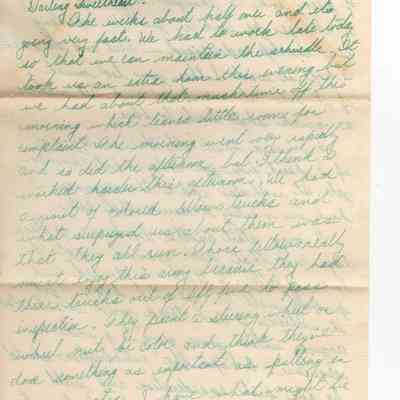 Darling Sweetheart:
The weeks about half over and its
going very fast. We had to work late today
so that we can maintain the schedule. It
took us an extra hour this evening but
we had about that much time off this
morning which leaves little room for
complaint. The morning went very rapidly
and so did the afternoon but I think I
worked harder this afternoon. We had
a unit of colored fellows trucks and
what surprised us about them was
that they all run. Those fellows really
must enjoy this army because they had
their trucks all to pass
inspection. They paint a steering wheel or
wheel nut to color and think they've
done something as important as putting in
what might be